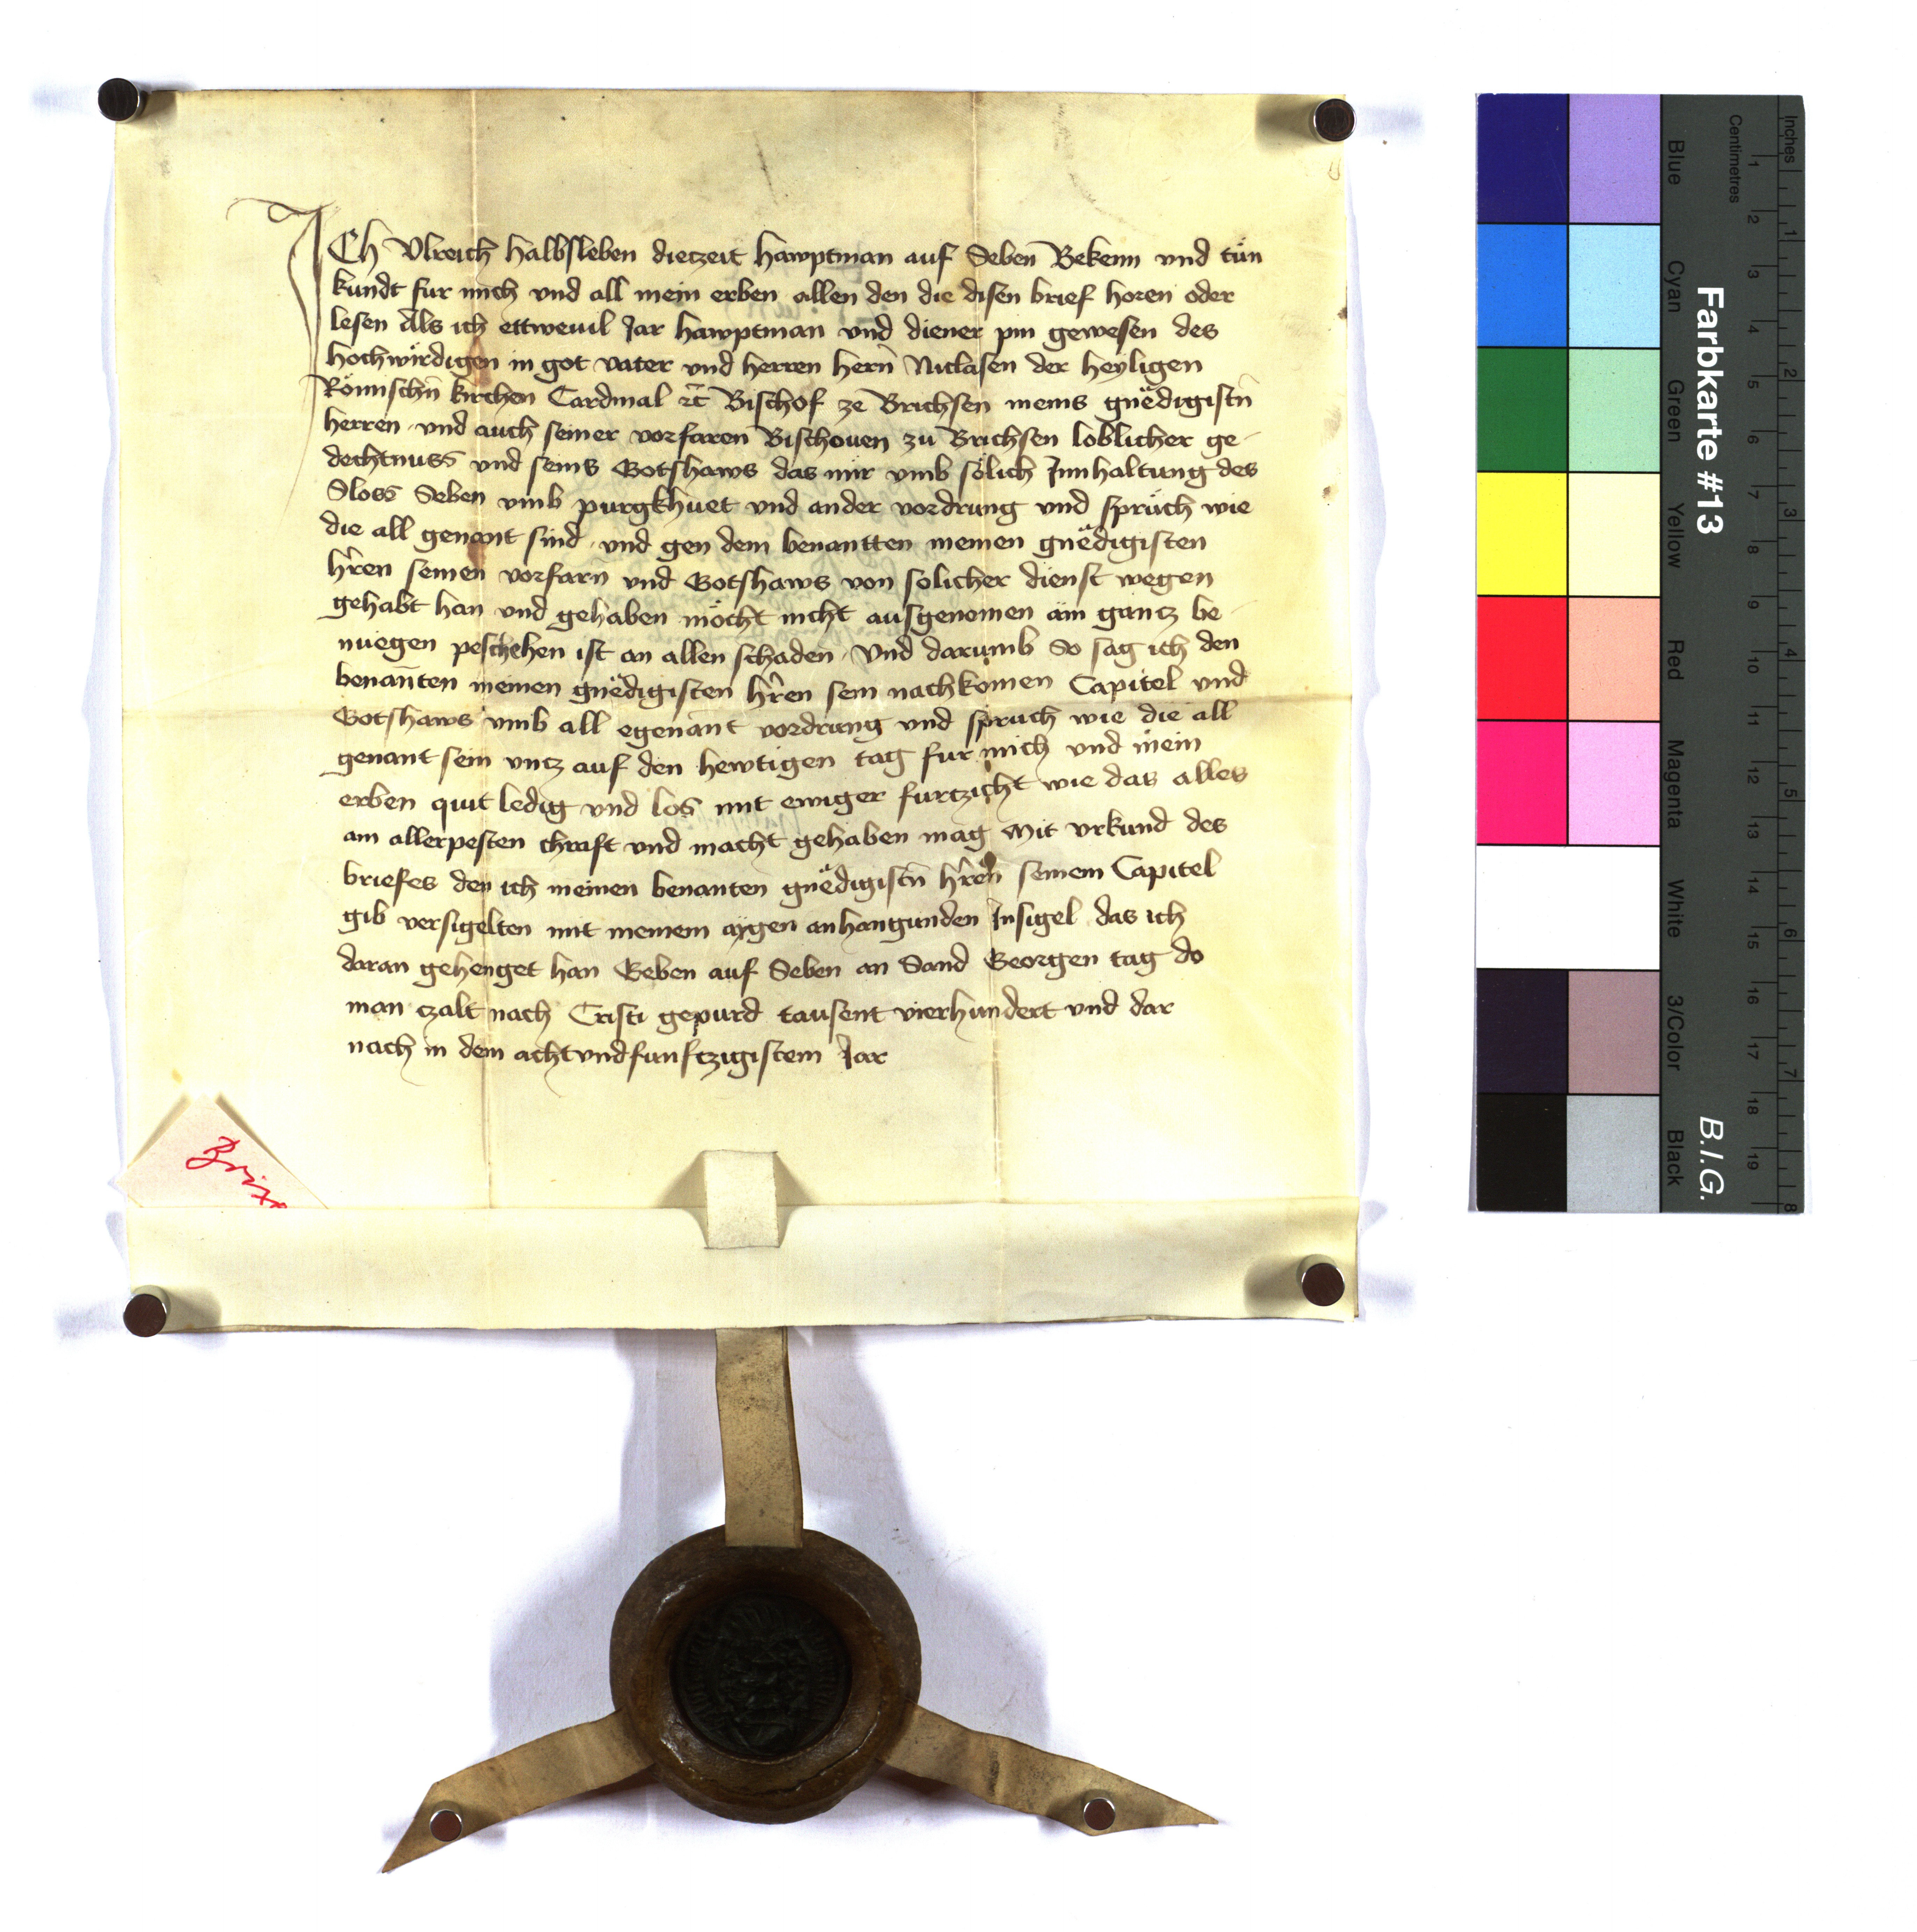 ICh Vlreich Halbsleben dieczeit Hawptman auf Seben Bekenn vnd tün
kundt fur mich vnd all mein erben allen den die disen brief horen oder
lesen Als ich ettweuil Jar hawptman vnd diener pin gewesen des
hochwirdigen in got vater vnd herren hern̄ Niclasen der heyligen
Römischn̄ kirchen Cardinal ꝛc̄ Bischof ze Brichsen meins gnëdigistn̄
herren vnd auch seiner vorfaren Bischouen zu Brichsen loblicher ge-
dechtnuss vnd seins Gotshaws das mir vmb sölich Innhaltung des
Sloss Seben vmb purgkhuet vnd ander vordrung vnd sprüch wie
die all genant sind vnd gen dem benantten meinen gnëdigisten
hr̄en seinen vorfarn vnd Gotshaws von solicher dienst wegen
gehabt han vnd gehaben möcht nicht ausgenomen ain gancz be-
nuegen peschehen ist an allen schaden Vnd darumb So sag ich den
benan̄ten meinen gnëdigisten hr̄en sein nachkomen Capitel vnd
Gotshaws vmb all egenant vordrung vnd spruch wie die all
genant sein vncz auf den hewtigen tag fur mich vnd mein
erben quit ledig vnd los mit ewiger furczicht wie das alles
am allerpesten chraft vnd macht gehaben mag Mit vrkund des
briefes den ich meinen benanten gnëdigistn̄ hr̄en seinem Capitel
gib versigelten mit meinem aygen anhangunden Insigel das ich
daran gehenget han Geben auf Seben an Sand Georgen tag do
man czalt nach Cristi gepurd tausent vierhundert vnd dar
nach in dem achtvndfunfczigistem Jar
Brix
Farbkarte #13
B.I.G.
Inches
Centimetres
1 2 3 4 5 6 7 8 9 10 11 12 13 14 15 16 17 18 19
1 2 3 4 5 6 7 8
Blue
Cyan
Green
Yellow
Red
Magenta
White
3/Color
Black